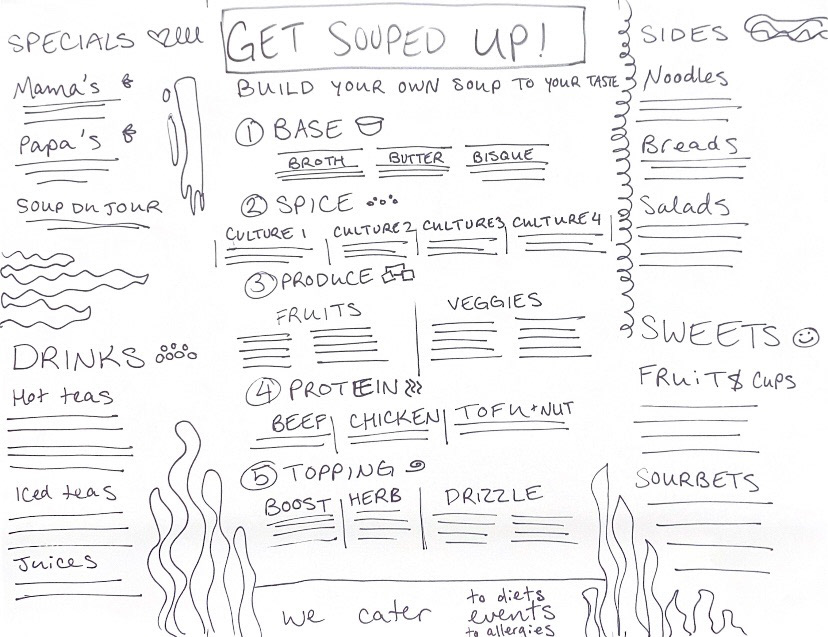 SPECIALS
Mama's
Papa's
SOUP DU JOUR
DRINKS
Hot teas
Iced teas
Juices
GET SOUPED UP!
BUILD YOUR OWN SOUP TO YOUR TASTE
1 BASE
BROTH BUTTER BISQUE
2 SPICE
CULTURE 1 CULTURE 2 CULTURE 3 CULTURE 4
3 PRODUCE
FRUITS VEGGIES
4 PROTEIN
BEEF CHICKEN TOFU + NUT
5 TOPPING
BOOST HERB DRIZZLE
we cater
to diets
events
to allergies
SIDES
Noodles
Breads
Salads
SWEETS
FRUIT$ CUPS
SOURBETS